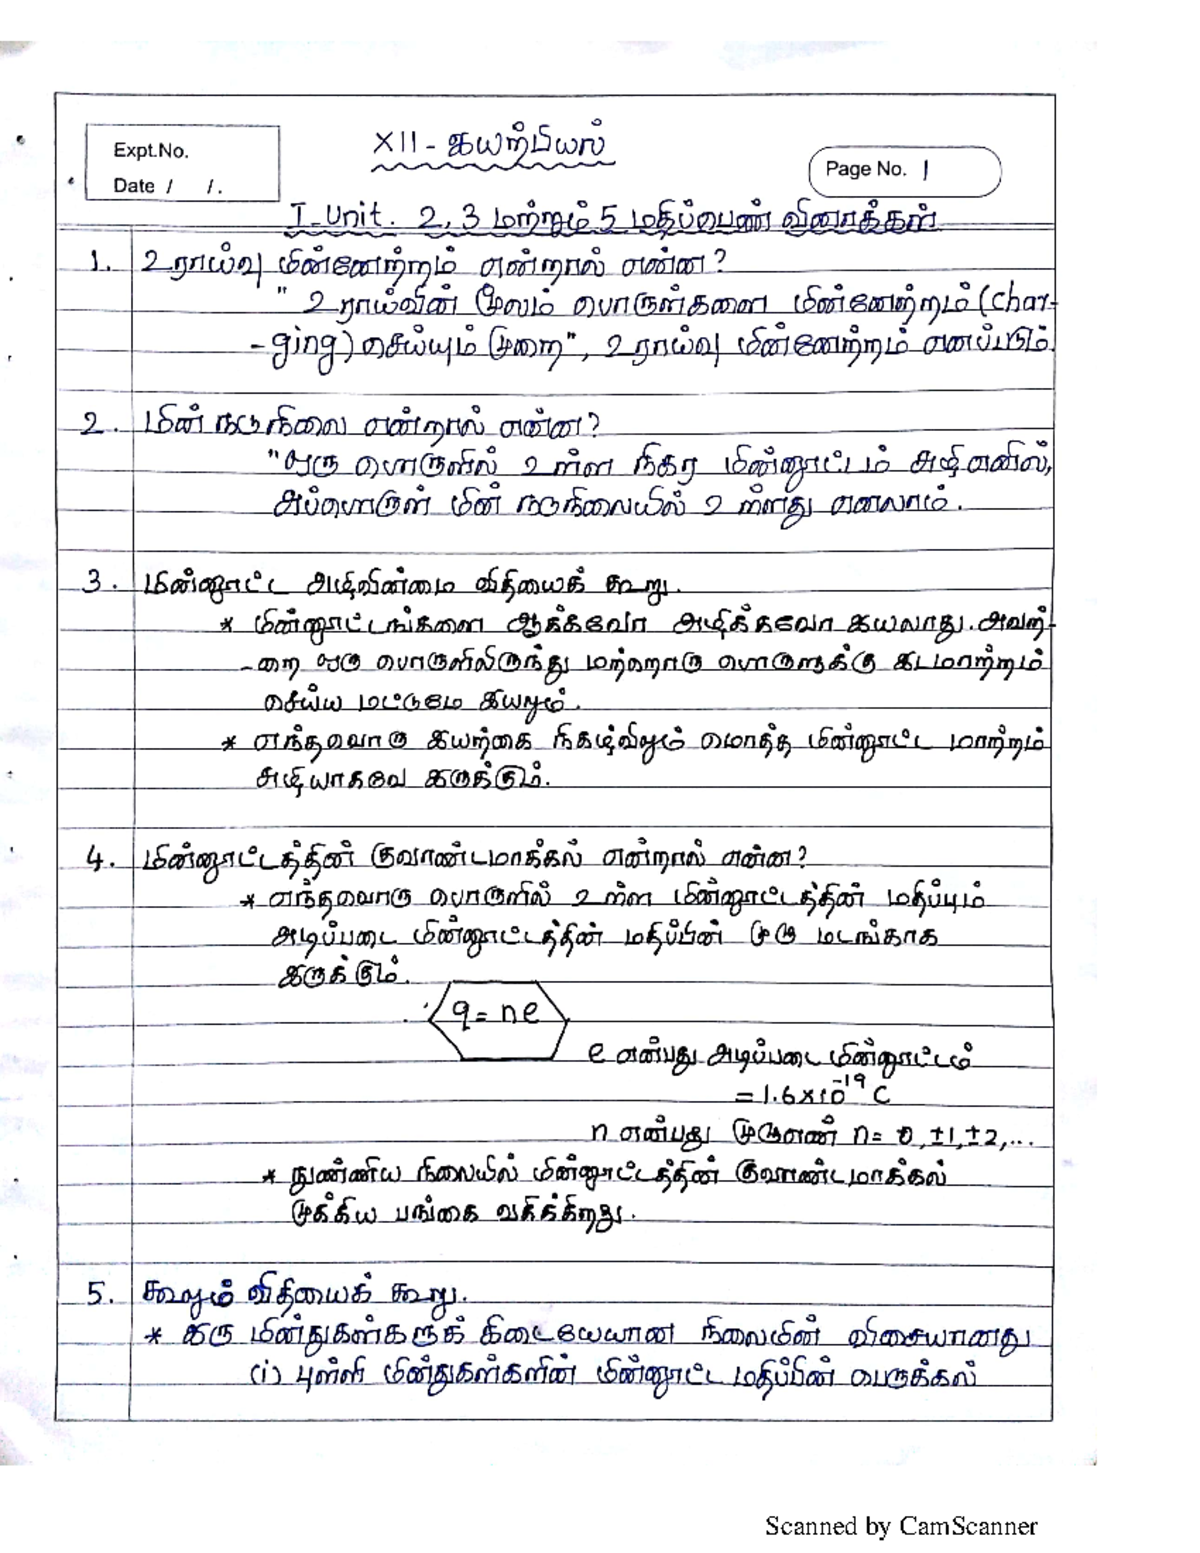 Expt.No.
Date / / .
XII - இயற்பியல்
Page No. 1
I-Unit. 2, 3 மற்றும் 5 மதிப்பெண் வினாக்கள்
1. உராய்வு மின்னேற்றம் என்றால் என்ன?
" உராய்வின் மூலம் பொருள்களை மின்னேற்றம் (char-
-ging) செய்யும் முறை", உராய்வு மின்னேற்றம் எனப்படும்.
2. மின் நடுநிலை என்றால் என்ன?
"ஒரு பொருளில் உள்ள நிகர மின்னூட்டம் சுழி எனில்,
அப்பொருள் மின் நடுநிலையில் உள்ளது எனலாம்.
3. மின்னூட்ட அழிவின்மை விதியைக் கூறு.
* மின்னூட்டங்களை ஆக்கவோ அழிக்கவோ இயலாது. அவற்-
-றை ஒரு பொருளிலிருந்து மற்றொரு பொருளுக்கு இடமாற்றம்
செய்ய மட்டுமே இயலும்.
* எந்தவொரு இயற்கை நிகழ்விலும் மொத்த மின்னூட்ட மாற்றம்
சுழியாகவே இருக்கும்.
4. மின்னூட்டத்தின் குவாண்டமாக்கல் என்றால் என்ன?
* எந்தவொரு பொருளில் உள்ள மின்னூட்டத்தின் மதிப்பும்
அடிப்படை மின்னூட்டத்தின் மதிப்பின் முழு மடங்காக
இருக்கும்.
q = ne
e என்பது அடிப்படை மின்னூட்டம்
= 1.6×10⁻¹⁹ C
n என்பது முழுஎண் n = 0, ±1, ±2, ...
* நுண்ணிய நிலையில் மின்னூட்டத்தின் குவாண்டமாக்கல்
முக்கிய பங்கை வகிக்கிறது.
5. கூலூம் விதியைக் கூறு.
* இரு மின்துகள்களுக் கிடையேயான நிலைமின் விசையானது
(i) புள்ளி மின்துகள்களின் மின்னூட்ட மதிப்பின் பெருக்கல்
Scanned by CamScanner